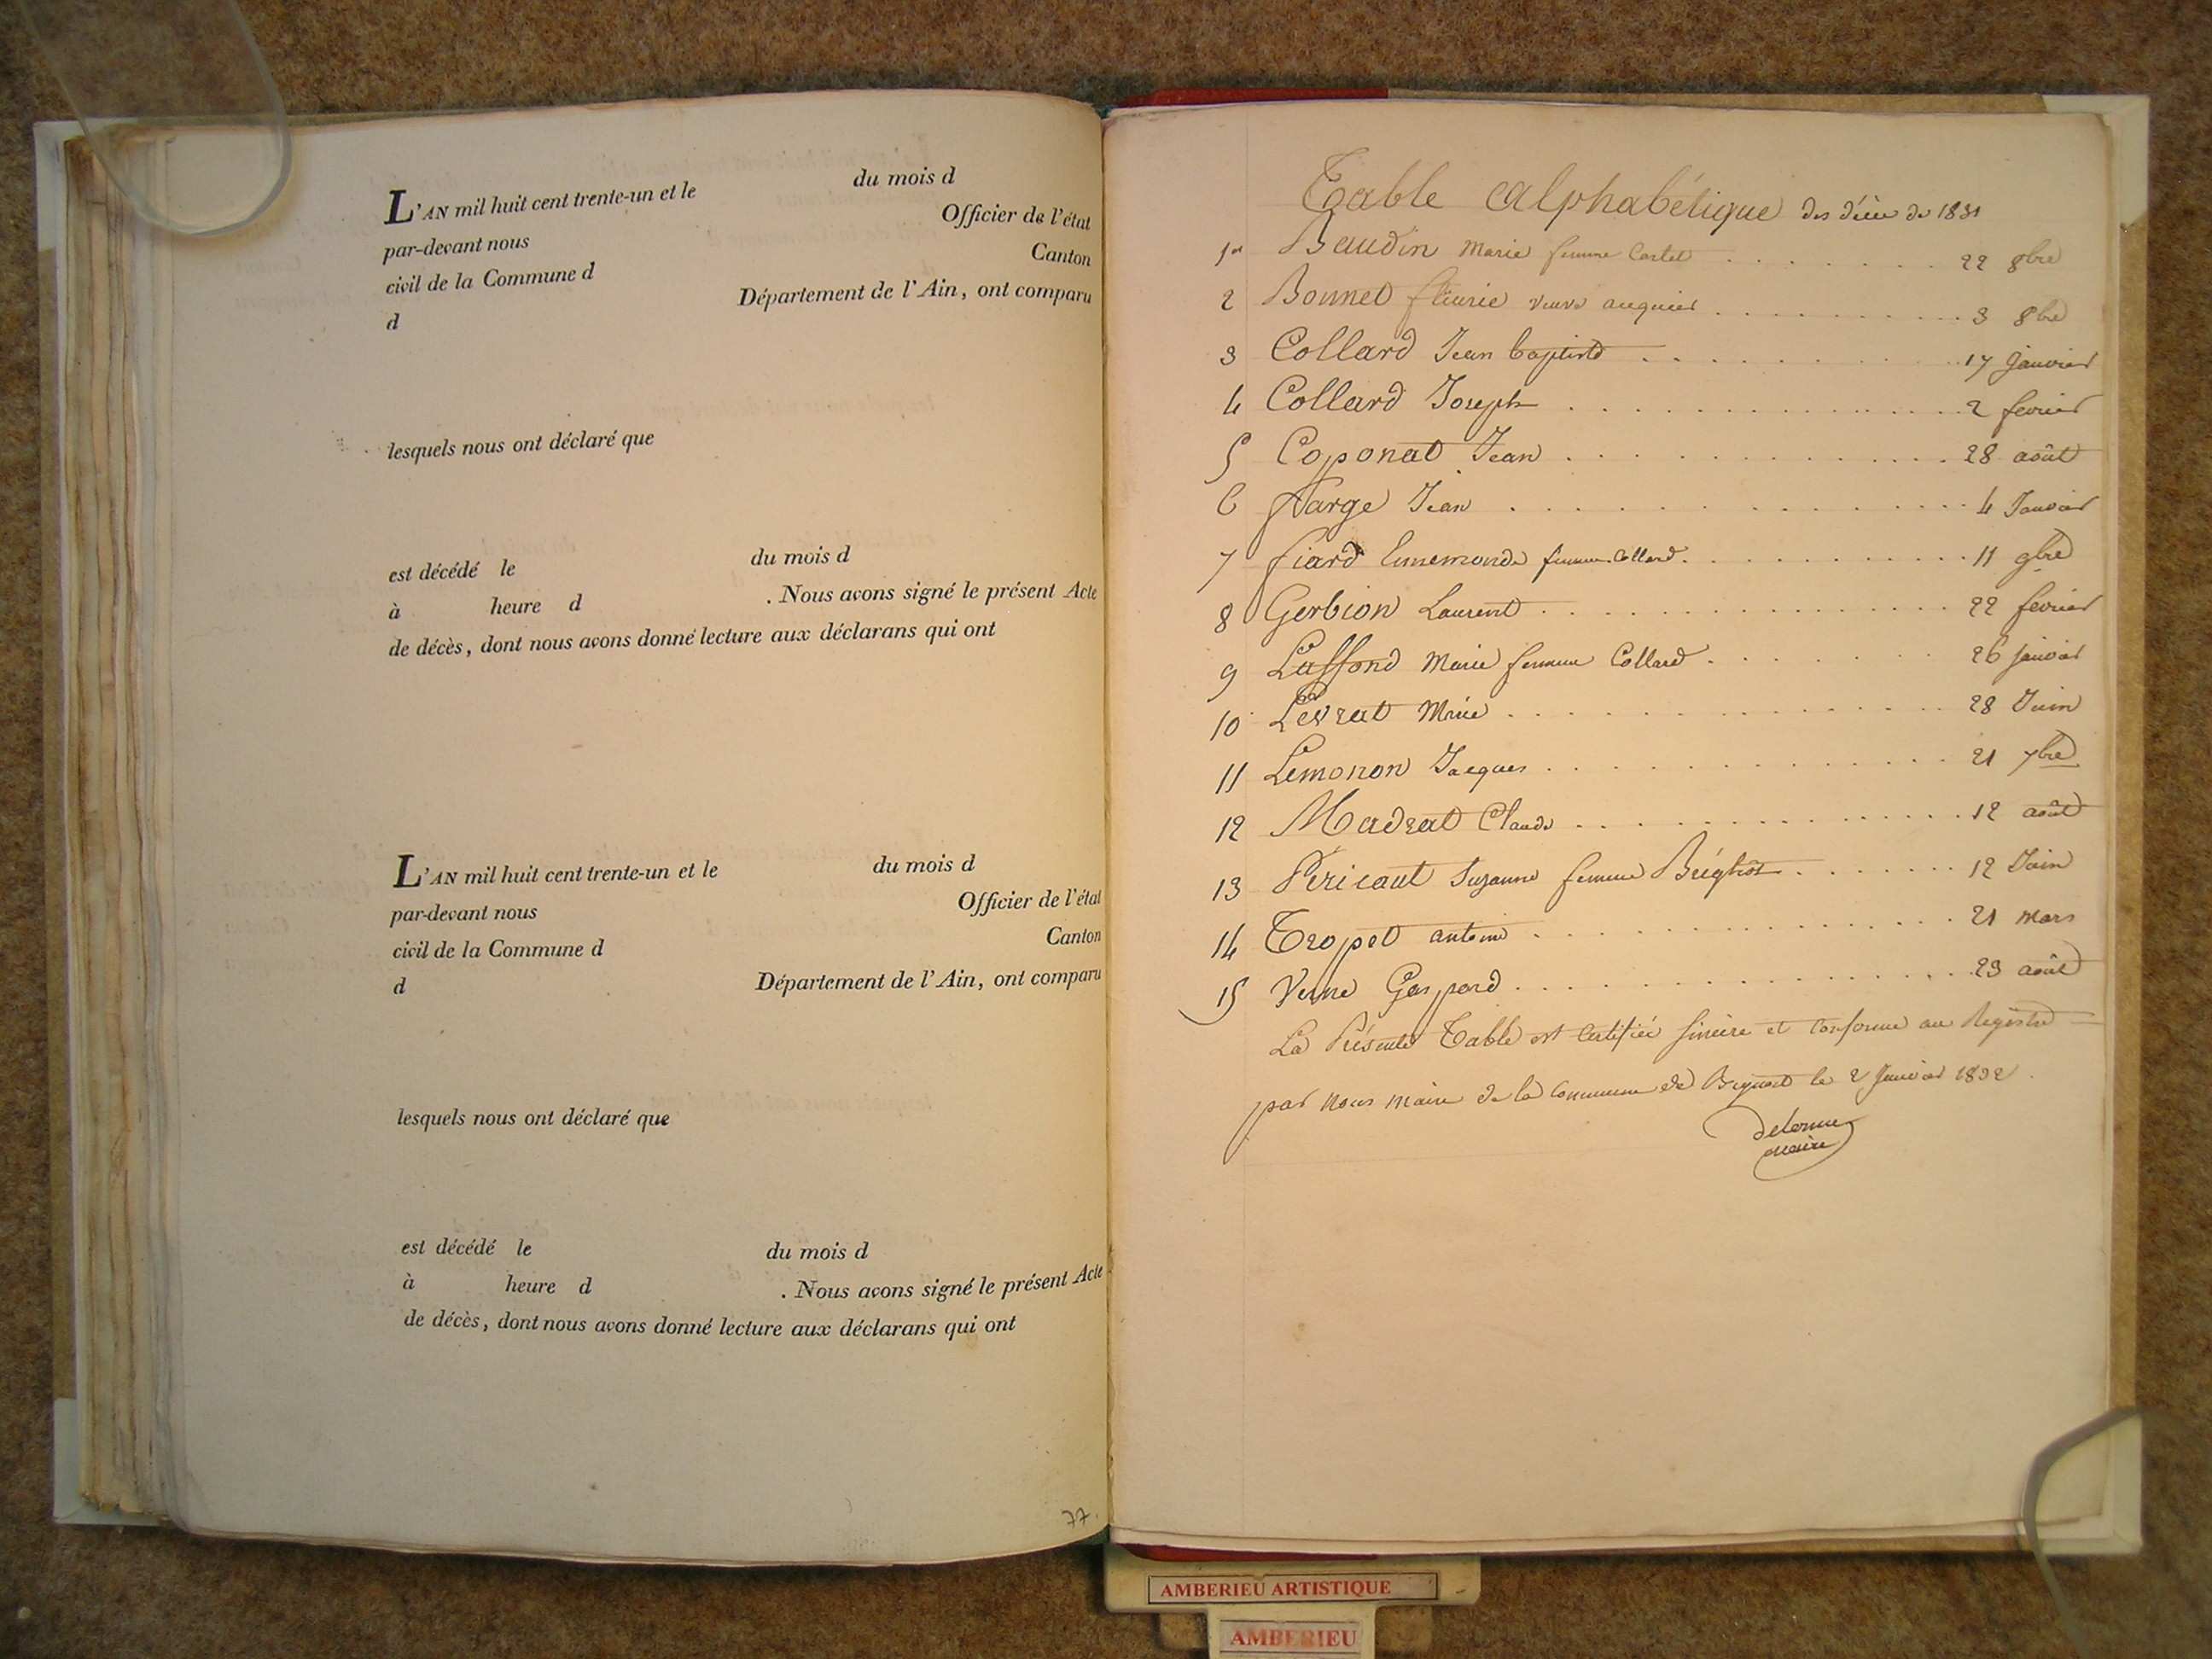 L'AN mil huit cent trente-un et le du mois d
par-devant nous Officier de l'état
civil de la Commune d Canton
d Département de l'Ain, ont comparu
lesquels nous ont déclaré que
est décédé le du mois d
à heure d . Nous avons signé le présent Acte
de décès, dont nous avons donné lecture aux déclarans qui ont
L'AN mil huit cent trente-un et le du mois d
par-devant nous Officier de l'état
civil de la Commune d Canton
d Département de l'Ain, ont comparu
lesquels nous ont déclaré que
est décédé le du mois d
à heure d . Nous avons signé le présent Acte
de décès, dont nous avons donné lecture aux déclarans qui ont
77.
Table Alphabétique des décès de 1831
1er Baudin Marie femme Castel 22 8bre
2 Bonnet fleurie veuve 3 8bre
3 Collard Jean baptiste 17 Janvier
4 Collard Joseph 2 fevrier
5 Coponat Jean 28 août
6 farge Jean 4 Janvier
7 fiard Ennemonde femme Collard 11 9bre
8 Gerbion Laurent 22 fevrier
9 Laffond Marie femme Collard 26 janvier
10 Levrat Marie 28 Juin
11 Lemonon Jacques 21 7bre
12 Madrat Claude 12 août
13 Pericaut Suzanne femme Bréghot 12 Juin
14 Tropet antoine 21 mars
15 Verne Gaspard 23 août
La Présente Table est Certifiée sincère et conforme au Registre
par nous maire de la Commune de le 2 Janvier 1832.
delorme
maire
AMBERIEU ARTISTIQUE
AMBERIEU